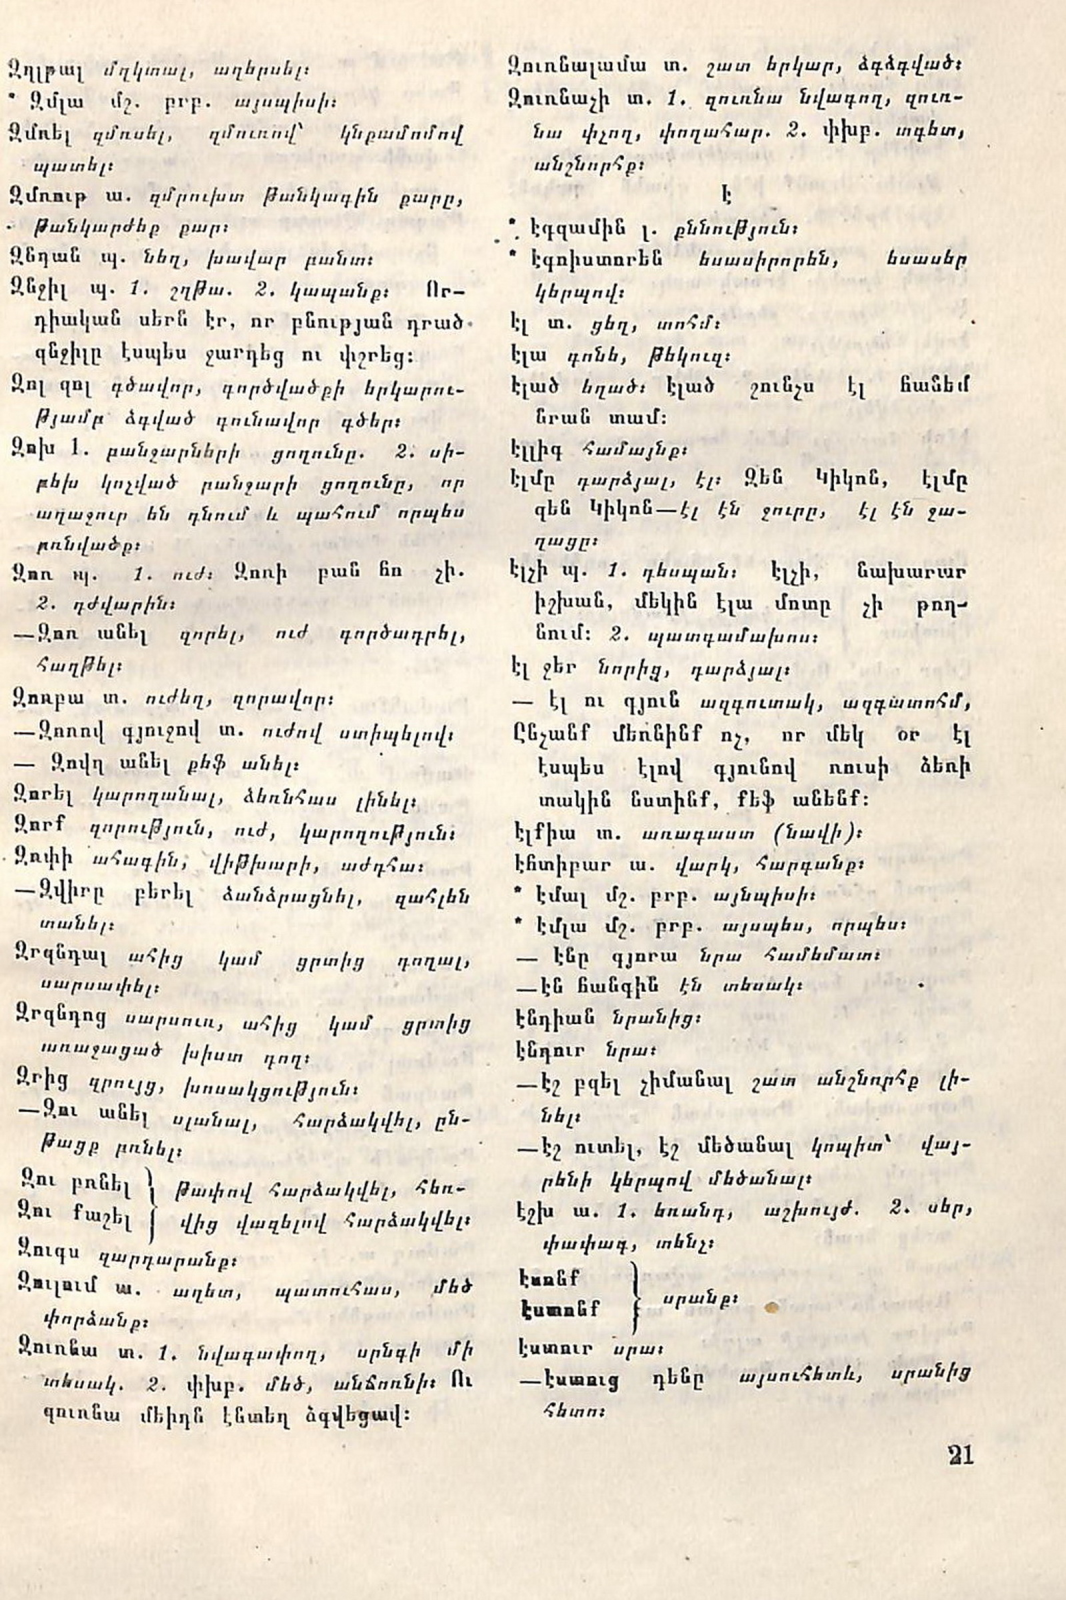 Զղլթալ մղկտալ, աղերսել։
* Զմլա մշ. բրբ. այսպիսի։
Զմռել զմռսել, զմուռով՝ կնքամոմով
պատել։
Զմռութ ա. զմրուխտ թանկագին քարը,
թանկարժեք քար։
Զնդան պ. նեղ, խավար բանտ։
Զնջիլ պ. 1. շղթա. 2. կապանք։ Որ–
դիական սերն էր, որ բնության դրած
զնջիլը էսպես ջարդեց ու փշրեց։
Զոլ զոլ գծավոր, գործվածքի երկարու–
թյամբ ձգված գունավոր գծեր։
Զոխ 1. բանջարների ցողունը. 2. սի–
բեխ կոչված բանջարի ցողունը, որ
աղաջուր են դնում և պահում որպես
բռնվածք։
Զոռ պ. 1. ուժ։ Զոռի բան հո չի.
2. դժվարին։
—Զոռ անել զորել, ուժ գործադրել,
հաղթել։
Զոռբա տ. ուժեղ, զորավոր։
—Զոռով գյուջով տ. ուժով ստիպելով։
— Զովղ անել քեֆ անել։
Զորել կարողանալ, ձեռնհաս լինել։
Զորք զորություն, ուժ, կարողություն։
Զոփի ահագին, վիթխարի, աժդհա։
—Զվիրը բերել ձանձրացնել, զահլեն
տանել։
Զրզնդալ ահից կամ ցրտից դողալ,
սարսափել։
Զրզնդոց սարսուռ, ահից կամ ցրտից
առաջացած խիստ դող։
Զրից զրույց, խոսակցություն։
—Զու անել սլանալ, հարձակվել, ըն–
թացք բռնել։
Զու բռնել } թափով հարձակվել, հեռ–
Զու քաշել } վից վազելով հարձակվել։
Զուգս զարդարանք։
Զուլում ա. աղետ, պատուհաս, մեծ
փորձանք։
Զուռնա տ. 1. նվագափող, սրնգի մի
տեսակ. 2. փխբ. մեծ, անճոռնի։ Ու
զուռնա մեիդն էնտեղ ձգվեցավ։
Զուռնալամա տ. շատ երկար, ձգձգված։
Զուռնաչի տ. 1. զուռնա նվագող, զուռ–
նա փչող, փողահար. 2. փխբ. տգետ,
անշնորհք։
Է
* Էգզամին լ. քննություն։
* Էգոիստորեն եսասիրորեն, եսասեր
կերպով։
Էլ տ. ցեղ, տոհմ։
Էլա գոնե, թեկուզ։
Էլած եղած։ Էլած շունչս էլ հանեմ
նրան տամ։
Էլլիգ համայնք։
Էլմը դարձյալ, էլ։ Զեն Կիկոն, էլմը
զեն Կիկոն—էլ էն ջուրը, էլ էն ջա–
ղացը։
Էլչի պ. 1. դեսպան։ Էլչի, նախարար
իշխան, մեկին էլա մոտը չի թող–
նում։ 2. պատգամախոս։
Էլ ջեր նորից, դարձյալ։
— Էլ ու գյուն ազգուտակ, ազգատոհմ,
Ընչանք մեռնինք ոչ, որ մեկ օր էլ
էսպես էլով գյունով ռուսի ձեռի
տակին նստինք, քեֆ անենք։
Էլքիա տ. առագաստ (նավի)։
Էհտիբար ա. վարկ, հարգանք։
* Էմալ մշ. բրբ. այնպիսի։
* Էմլա մշ. բրբ. այսպես, որպես։
— Էնը գյորա նրա համեմատ։
—Էն հանգին էն տեսակ։
Էնդիան նրանից։
Էնդուր նրա։
—Էշ բզել չիմանալ շատ անշնորհք լի–
նել։
—Էշ ուտել, էշ մեծանալ կոպիտ՝ վայ–
րենի կերպով մեծանալ։
Էշխ ա. 1. եռանդ, աշխույժ. 2. սեր,
փափագ, տենչ։
Էսոնք
Էստոնք } սրանք։
Էստուր սրա։
—Էստուց դենը այսուհետև, սրանից
հետո։
21